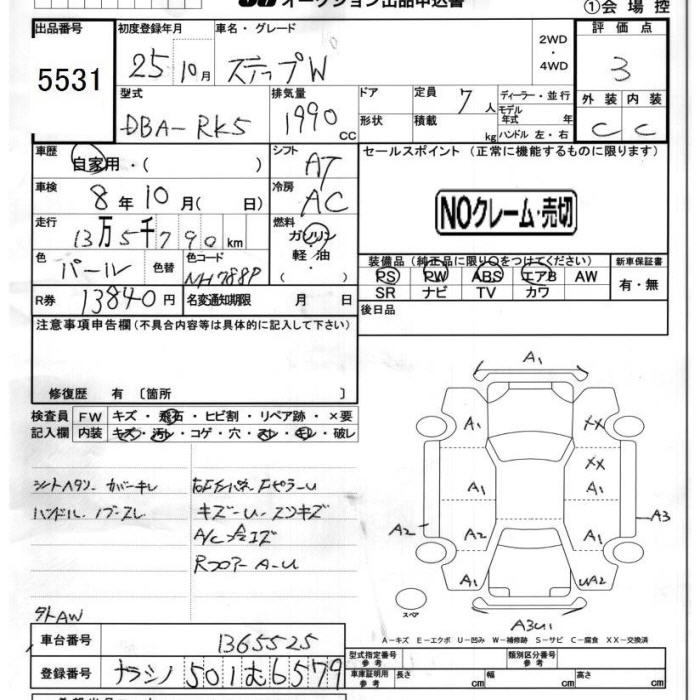 オークション出品申込書
①会場控
出品番号 初度登録年月 車名・グレード 2WD・4WD 評価点
5531 25年10月 ステップW 3
型式 排気量 ドア 定員 7人 ディーラー・並行 外装 内装
DBA-RK5 1990 CC 形状 積載 kg モデル年式 年 ハンドル 左・右 C C
車歴 自家用・( ) シフト AT セールスポイント (正常に機能するものに限ります)
車検 8年10月( 日) 冷房 AC
NOクレーム・売切
走行 13万5千790km 燃料 ガソリン 軽油 ・( )
色 パール 色替 色コード NH788P 装備品 (純正品に限り○をつけてください) 新車保証書
PS PW ABS エアB AW 有・無
R券 13840円 名変通知期限 月 日 SR ナビ TV カワ
注意事項申告欄(不具合内容等は具体的に記入して下さい) 後日品
修復歴 有 〔箇所 〕
検査員 FW キズ・飛石・ヒビ割・リペア跡・×要
記入欄 内装 キズ・汚レ・コゲ・穴・スレ・モレ・破レ
シートヘタリ カバーキレ
ハンドル ノブスレ
キズーU-エクキズ
RフロアーA-U
外AW
A1
A1 XX
XX
A1 A1
A2 A3
A2 A1
A1 UA2
スペア
A3U1
A-キズ E-エクボ U-凹み W-補修跡 S-サビ C-腐食 XX-交換済
車台番号 1365525 型式指定番号 参考 類別区分番号 参考
登録番号 ナラシノ 501 む 6579 車庫証明用 参考 長さ cm 幅 cm 高さ cm